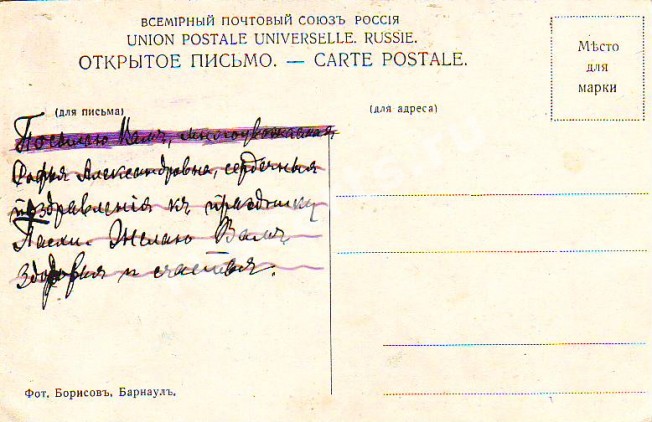 ВСЕМІРНЫЙ ПОЧТОВЫЙ СОЮЗЪ РОССІЯ
UNION POSTALE UNIVERSELLE. RUSSIE.
ОТКРЫТОЕ ПИСЬМО. — CARTE POSTALE.
Мѣсто
для
марки
(для письма)
(для адреса)
Посылаю Вамъ, многоуважаемая
Софья Александровна, сердечныя
поздравленія къ празднику
Пасхи. Желаю Вамъ
здоровья и счастья.
Фот. Борисовъ, Барнаулъ.